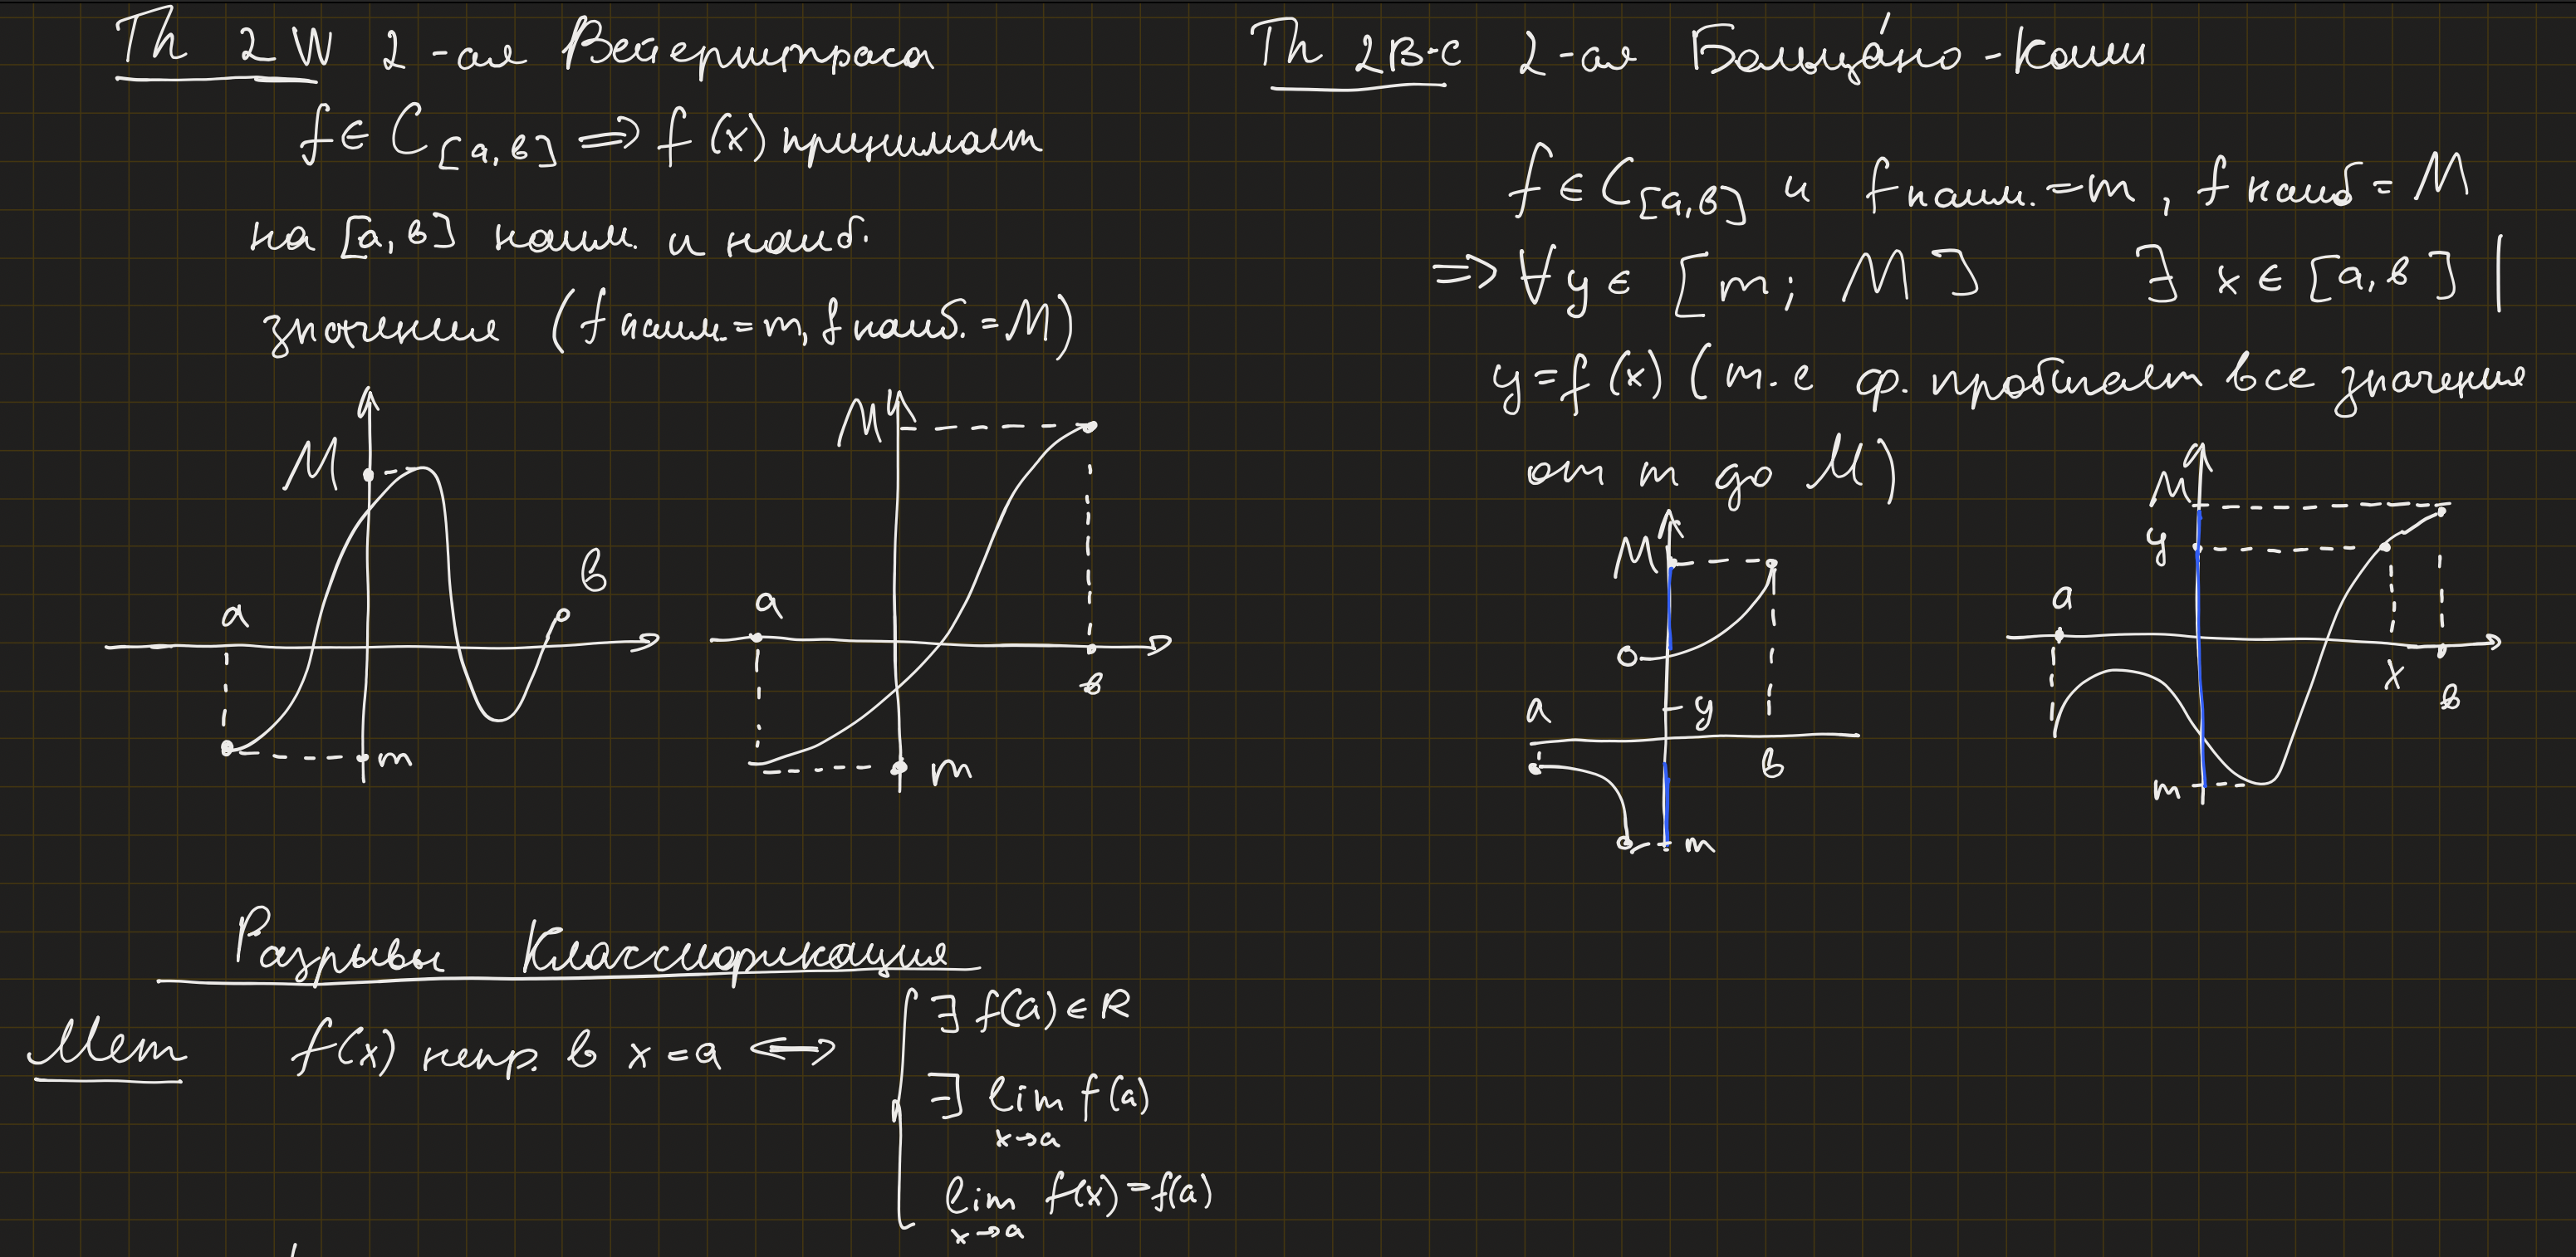 Th 2 W 2-ая Вейерштраса
f ∈ C[a,в] => f(x) принимает
на [a, в] наим. и наиб.
значение (f наим. = m, f наиб. = M)
M
a
в
m
M
a
в
m
Th 2B-C 2-ая Больца́но-Коши
f ∈ C[a,в] и f наим. = m, f наиб = M
=> ∀y ∈ [m; M] ∃ x ∈ [a,в] |
y = f(x) (т.е ф. пробегает все значения
от m до M)
M
y
a
в
m
M
y
a
x
в
m
Разрывы Классификация
Мет f(x) непр. в x = a <=>
∃ f(a) ∈ R
∃ lim f(a)
x→a
lim f(x) = f(a)
x→a